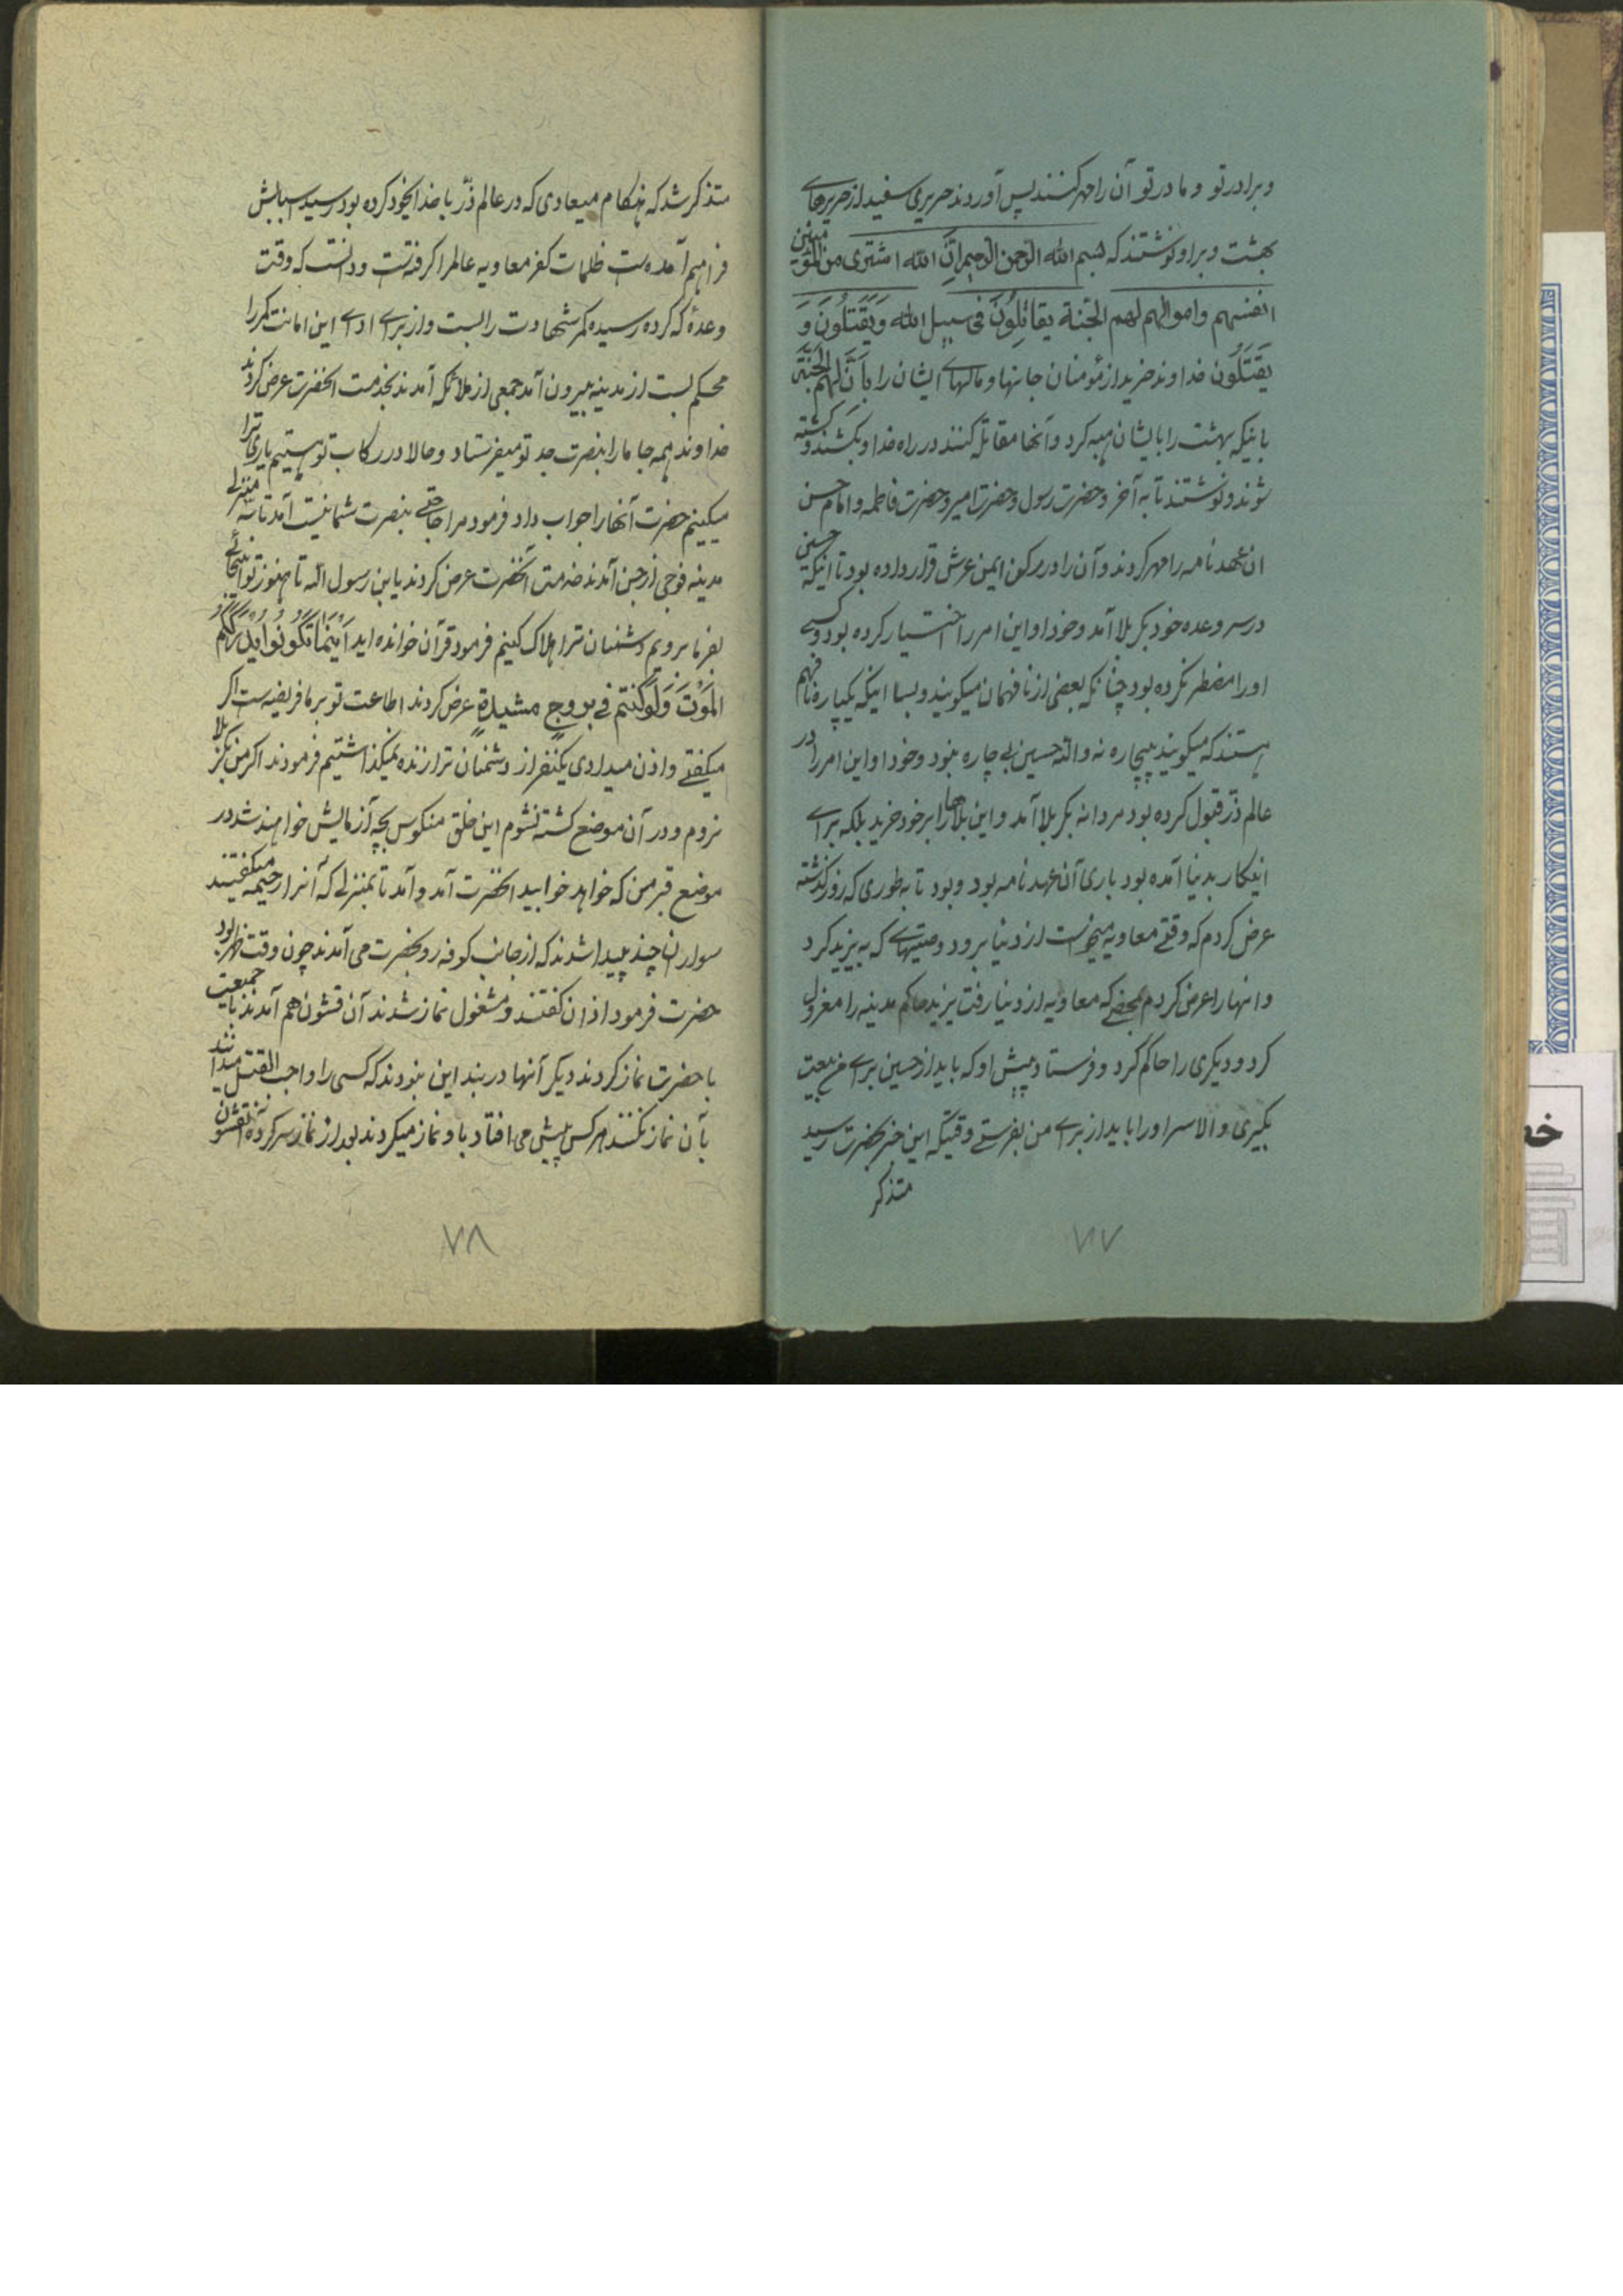 وبرادر تو و مادر تو آن را مهر کنند پس آوردند حریری سفید از حریرهای
بهشت و بر او نوشتند که بسم الله الرحمن الرحیم اِنَّ الله اشتری من المؤمنین
انفسهم واموالهم لهم الجنة یقاتِلُونَ فی سبیل الله وَیَقتُلُونَ وَ
یُقتَلُون خداوند خرید از مؤمنان جانها و مالهای ایشان را بِاَنَّ لهم الجَنَّةَ
باینکه بهشت را بایشان هبه کرد و آنها مقاتله کنند در راه خدا و بکشند و کشته
شوند و نوشتند تا به آخر و حضرت رسول و حضرت امیر و حضرت فاطمه و امام حسن
ان عهدنامه را مهر کردند و آن را در رکن ایمن عرش قرار داده بود تا اینکه حسین
در سر وعده خود بکربلا آمد و خود او این امر را اختیار کرده بود و کسی
او را مضطر نکرده بود چنانکه بعضی از نافهمان میگویند و بسا اینکه یکپاره نافهم
هستند که میگویند بیچاره نه والله حسین بی چاره نبود و خود او این امر را در
عالم ذر قبول کرده بود مردانه بکربلا آمد و این بلاها را بر خود خرید بلکه برای
اینکار بدنیا آمده بود باری آن عهدنامه بود و بود تا به طوری که روز گذشته
عرض کردم که وقتی معاویه میخواست از دنیا برود وصیتهای که به یزید کرد
و انها را عرض کردم محضی که معاویه از دنیا رفت یزید حاکم مدینه را معزول
کرد و دیگری را حاکم کرد و فرستاد پیش او که باید از حسین برای من بیعت
بگیری و الا سر او را باید از برای من بفرستی وقتیکه این خبر بحضرت رسید
متذکر
۷۷
متذکر شد که هنگام میعادی که در عالم ذرّ با خدای خود کرده بود رسید اسبابش
فراهم آمده است ظلمات کفر معاویه عالم را گرفته است و دانست که وقت
وعدهٔ که کرده رسیده کمر شهادت را بست و از برای ادای این امانت کمر را
محکم بست از مدینه بیرون آمد جمعی از ملائکه آمدند بخدمت انحضرت عرض کردند
خداوند همه جا ما را بنصرت جد تو میفرستاد و حالا در رکاب تو هستیم یاری ترا
میکینم حضرت آنها را جواب داد فرمود مرا حاجتی بنصرت شما نیست آمد تا سه منزلی
مدینه فوجی از جن آمدند خدمت آنحضرت عرض کردند یابن رسول الله تا هنوز تو اینجائی
بفرما برویم دشمنان ترا هلاک کنیم فرمود قرآن خوانده اید اَیْنَمَا تَکُونُوا یُدْرِکْکُمُ
المَوْتُ وَلَوکُنتم فی بروجٍ مشیدةٍ عرض کردند اطاعت تو بر ما فریضه است اگر
میگفتی و اذن میدادی یکنفر از دشمنان ترا زنده نمیگذاشتیم فرمودند اگر من بکربلا
نروم و در آن موضع کشته نشوم این خلق منکوس بچه آزمایش خواهند شد در
موضع قبر من که خواهد خوابید انحضرت آمد و آمد تا بمنزلی که آنرا رحیمه میگفتند
سواران چند پیدا شدند که از جانب کوفه رو بحضرت می آمدند چون وقت ظهر بود
حضرت فرمود اذان گفتند و مشغول نماز شدند آن قشون هم آمدند با جمیعت
با حضرت نماز کردند دیگر آنها در بند این نبودند که کسی را واجب القتل میدانند
بآن نماز نکنند هر کس پیش می افتاد باو نماز میکردند بعد از نماز سر کرده آنقشون
۷۸
خط